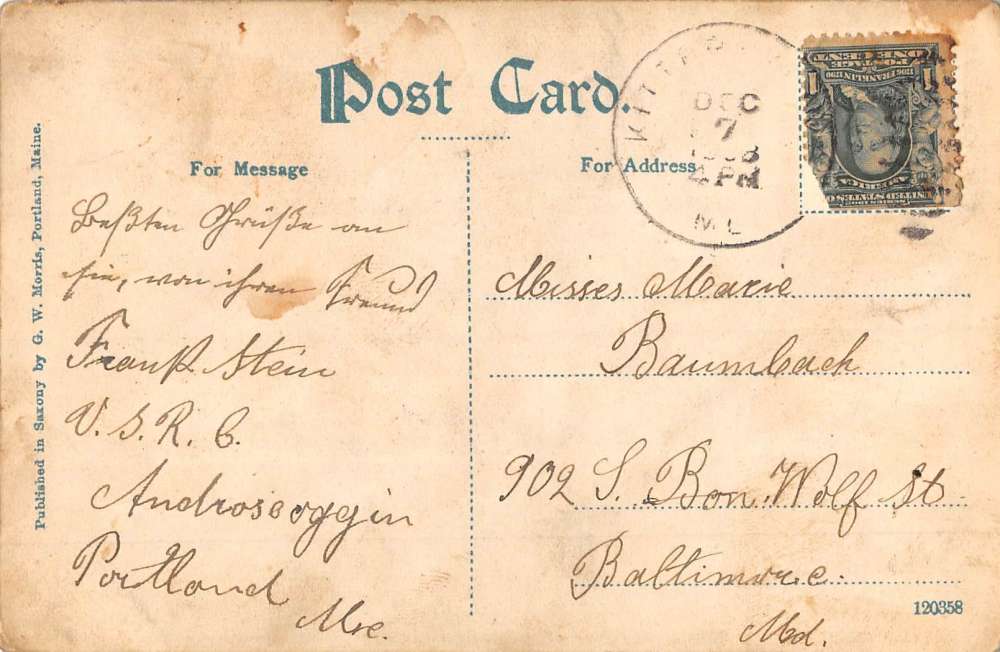 Post Card.
For Message
For Address
Published in Saxony by G. W. Morris, Portland, Maine.
Beßten Grüße an
sie, von ihren Freund
Frank Stein
U. S. R. C.
Androscoggin
Portland
Me.
KITTERY
DEC
7
4 PM
POSTAGE
ONE CENT
1706 FRANKLIN 1790
1
1
SERIES 1902
UNITED STATES OF AMERICA
Misses Marie
Baumbach
902 S. Bon. Wolf St
Baltimore.
Md.
120358